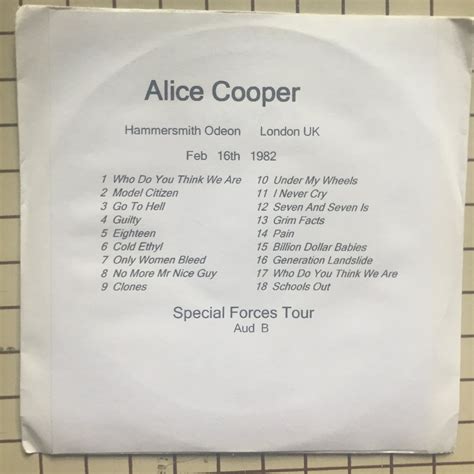 Alice Cooper
Hammersmith Odeon London UK
Feb 16th 1982
1 Who Do You Think We Are
2 Model Citizen
3 Go To Hell
4 Guilty
5 Eighteen
6 Cold Ethyl
7 Only Women Bleed
8 No More Mr Nice Guy
9 Clones
10 Under My Wheels
11 I Never Cry
12 Seven And Seven Is
13 Grim Facts
14 Pain
15 Billion Dollar Babies
16 Generation Landslide
17 Who Do You Think We Are
18 Schools Out
Special Forces Tour
Aud B